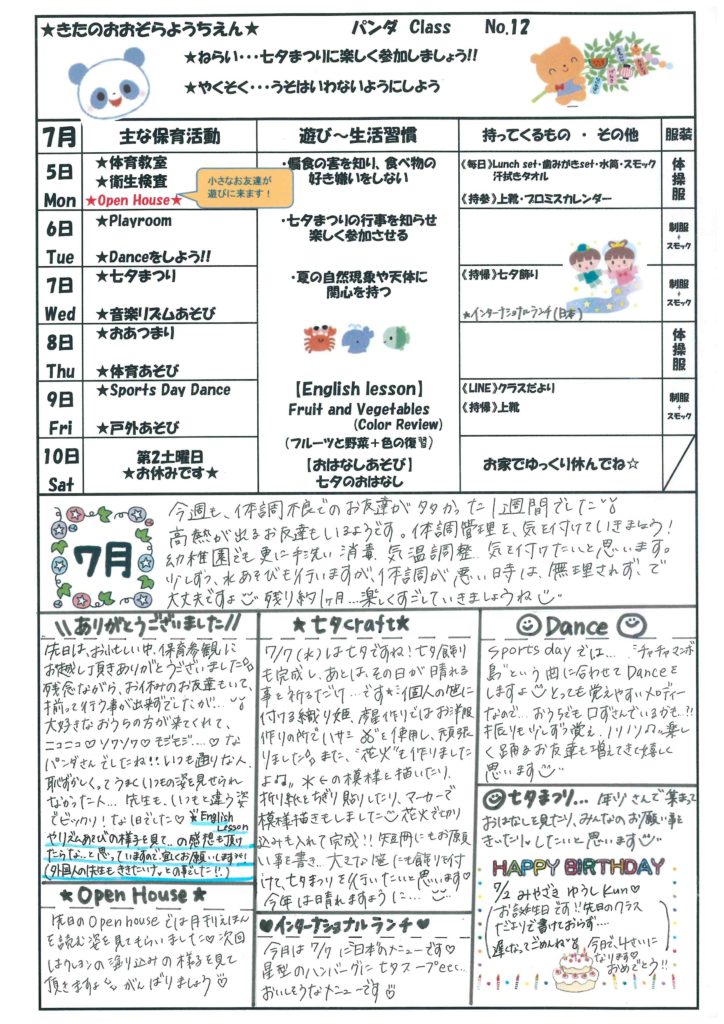 ★きたのおおぞらようちえん★ パンダ Class No.12
★ねらい・・・七夕まつりに楽しく参加しましょう!!
★やくそく・・・うそはいわないようにしよう
7月 主な保育活動 遊び～生活習慣 持ってくるもの ・ その他 服装
5日 Mon
★体育教室
★衛生検査
★Open House★
小さなお友達が
遊びに来ます！
・偏食の害を知り、食べ物の
好き嫌いをしない
《毎日》Lunch set・歯みがきset・水筒・スモック
汗拭きタオル
《持参》上靴・プロミスカレンダー
体操服
6日 Tue
★Playroom
★Danceをしよう!!
・七夕まつりの行事を知らせ
楽しく参加させる
制服+スモック
7日 Wed
★七夕まつり
★音楽リズムあそび
・夏の自然現象や天体に
関心を持つ
《持帰》七夕飾り
★インターナショナルランチ(日本)
制服+スモック
8日 Thu
★おあつまり
★体育あそび
体操服
9日 Fri
★Sports Day Dance
★戸外あそび
【English lesson】
Fruit and Vegetables
(Color Review)
(フルーツと野菜＋色の復習)
《LINE》クラスだより
《持帰》上靴
制服+スモック
10日 Sat
第2土曜日
★お休みです★
【おはなしあそび】
七夕のおはなし
お家でゆっくり休んでね☆
7月
今週も、体調不良でのお友達が多かった1週間でした
高熱が出るお友達もいるようです。体調管理を、気を付けていきましょう！
幼稚園でも更に手洗い、消毒、気温調整…気を付けたいと思います。
少しずつ、水あそびも行いますが、体調が悪い日時は、無理されず、で
大丈夫ですよ 残り約1ヶ月…楽しくすごしていきましょうね
\\ありがとうございました//
先日は、お忙しい中、保育参観に
お越し頂きありがとうございました
残念ながら、お休みのお友達もいて、
揃って行う事が出来ずでしたが…
大好きなおうちの方が来てくれて、
ニコニコ♡ソワソワ♡モジモジ…♡な
パンダさんでしたね!! いつも通りな人、
恥ずかしくってうまくいつもの姿を見せられ
なかった人… 先生も、いつもと違う姿
でビックリ！な1日でした♡ ★English Lesson
やリズムあそびの様子を見て…の感想も頂け
たらな…と思っていますので、宜しくお願いします
(外国人の先生もききたいな。との事でした!!)
★ Open House ★
先日のOpen houseでは月刊えほん
を読む姿を見てもらいました♡次回
はクレヨンの塗り込みの様子を見て
頂きますよ がんばりましょう♡
★ 七夕craft★
7/7(水)は七夕ですね！七夕飾り
も完成し、あとは、その日が晴れる
事を祈るだけ…です 個人の笹に
付ける織り姫、彦星作りではお洋服
作りの所でハサミを使用し、頑張
りました。また、“花火”も作りました
よ。その模様を描いたり、
折り紙をちぎり貼りしたり、マーカーで
模様描きもしました 花火で切り
込みも入れて完成!! 短冊にもお願
い事を書き、大きな笹にも飾り付
けて、七夕まつりを行いたいと思います
今年は晴れますように…
♥インターナショナルランチ♥
今月は7/7に日本のメニューです♡
星型のハンバーグに七夕スープetc…
おいしそうなメニューです♡
Dance
Sports dayでは… “チャチャマンボ
島”という曲に合わせてDanceを
しますよ とっても覚えやすいメロディー
なので…おうちでも口ずさんでいるかも…?!
振りも少しずつ覚え、ノリノリで楽し
く踊るお友達も増えてきて嬉しく
思います
七夕まつり… 年少さんで集まって
おはなしを見たり、みんなのお願い事を
きいたりしたいと思います
HAPPY BIRTHDAY
7/2 みやざき ゆうし kun♡
お誕生日です!! 先日のクラス
だよりで書けておらず…
遅くなってごめんね 今日で、4さいに
なります♡
おめでとう!!